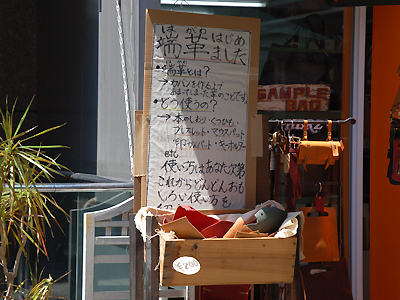 端革はじめ
ました
・端革とは?
→カバンを作る上で
あまってしまった革のことです。
・どう使うの?
→本のしおり・くつひも・
ブレスレット・マウスパット
・キーホルダー
etc
使い方はあなた次第
これからどんどんおも
しろい使い方を
SAMPLE
BAG
¥200